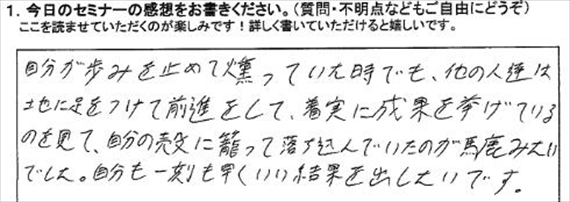 1. 今日のセミナーの感想をお書きください。(質問・不明点などもご自由にどうぞ)
ここを読ませていただくのが楽しみです！詳しく書いていただけると嬉しいです。
自分が歩みを止めて燻っていた時でも、他の人達は
地に足をつけて前進をして、着実に成果を挙げている
のを見て、自分の殻に籠って落ち込んでいたのが馬鹿みたい
でした。自分も一刻も早くいい結果を出したいです。